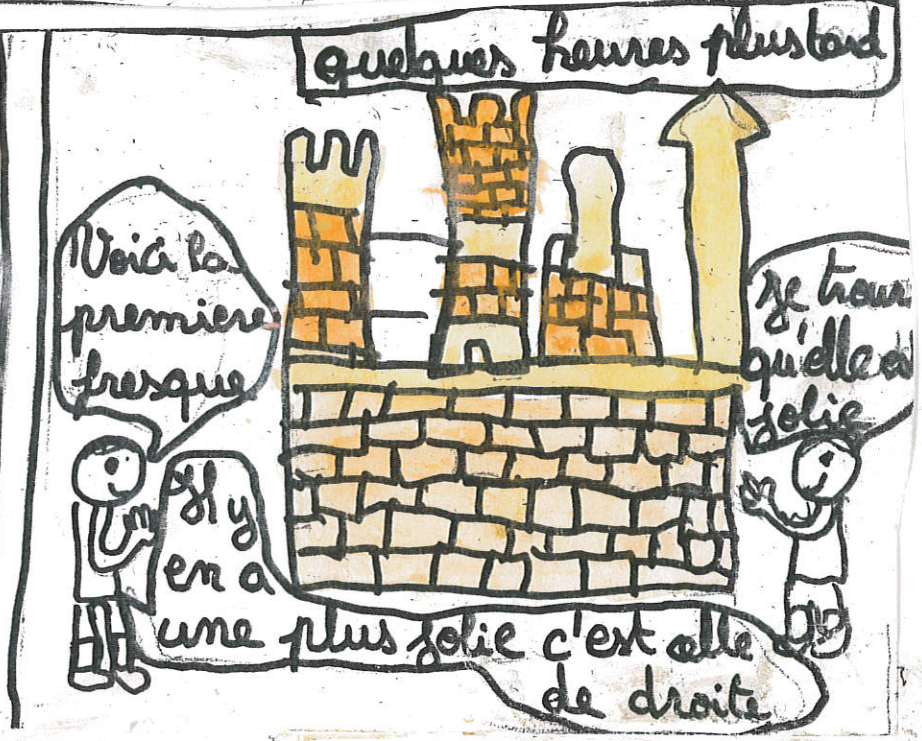 quelques heures plus tard
Voici la
premiere
fresque
je trouv
qu'elle es
jolie
Il y
en a
une plus jolie c'est celle
de droite